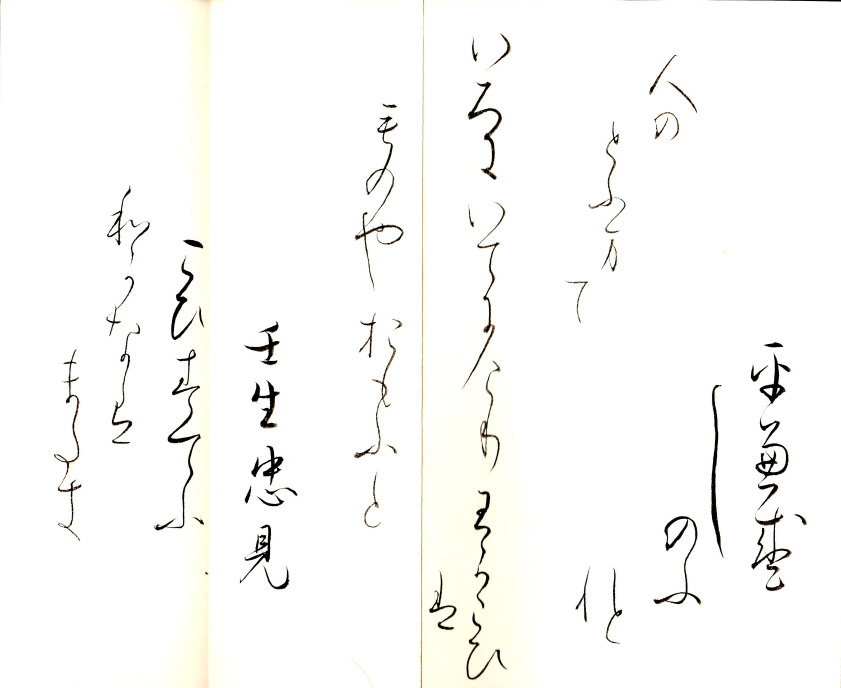 平兼盛
し
のふ
れと
いろに いてにけり わかこひ
は
毛のや おもふと
人の
とふ万
て
壬生忠見
こひすてふ
和かなは
またき